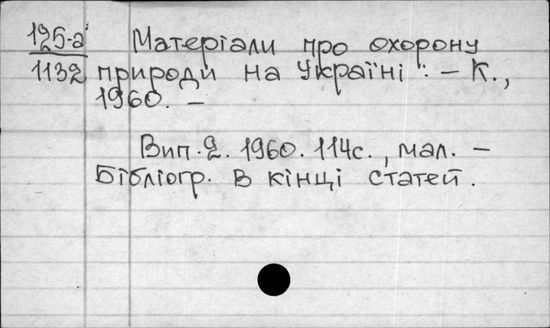 125-а Матеріали про охорону
1132 природи на Україні". – К.,
1960. –
Вип. 2. 1960. 114с., мал. –
Бібліогр. в кінці статей.